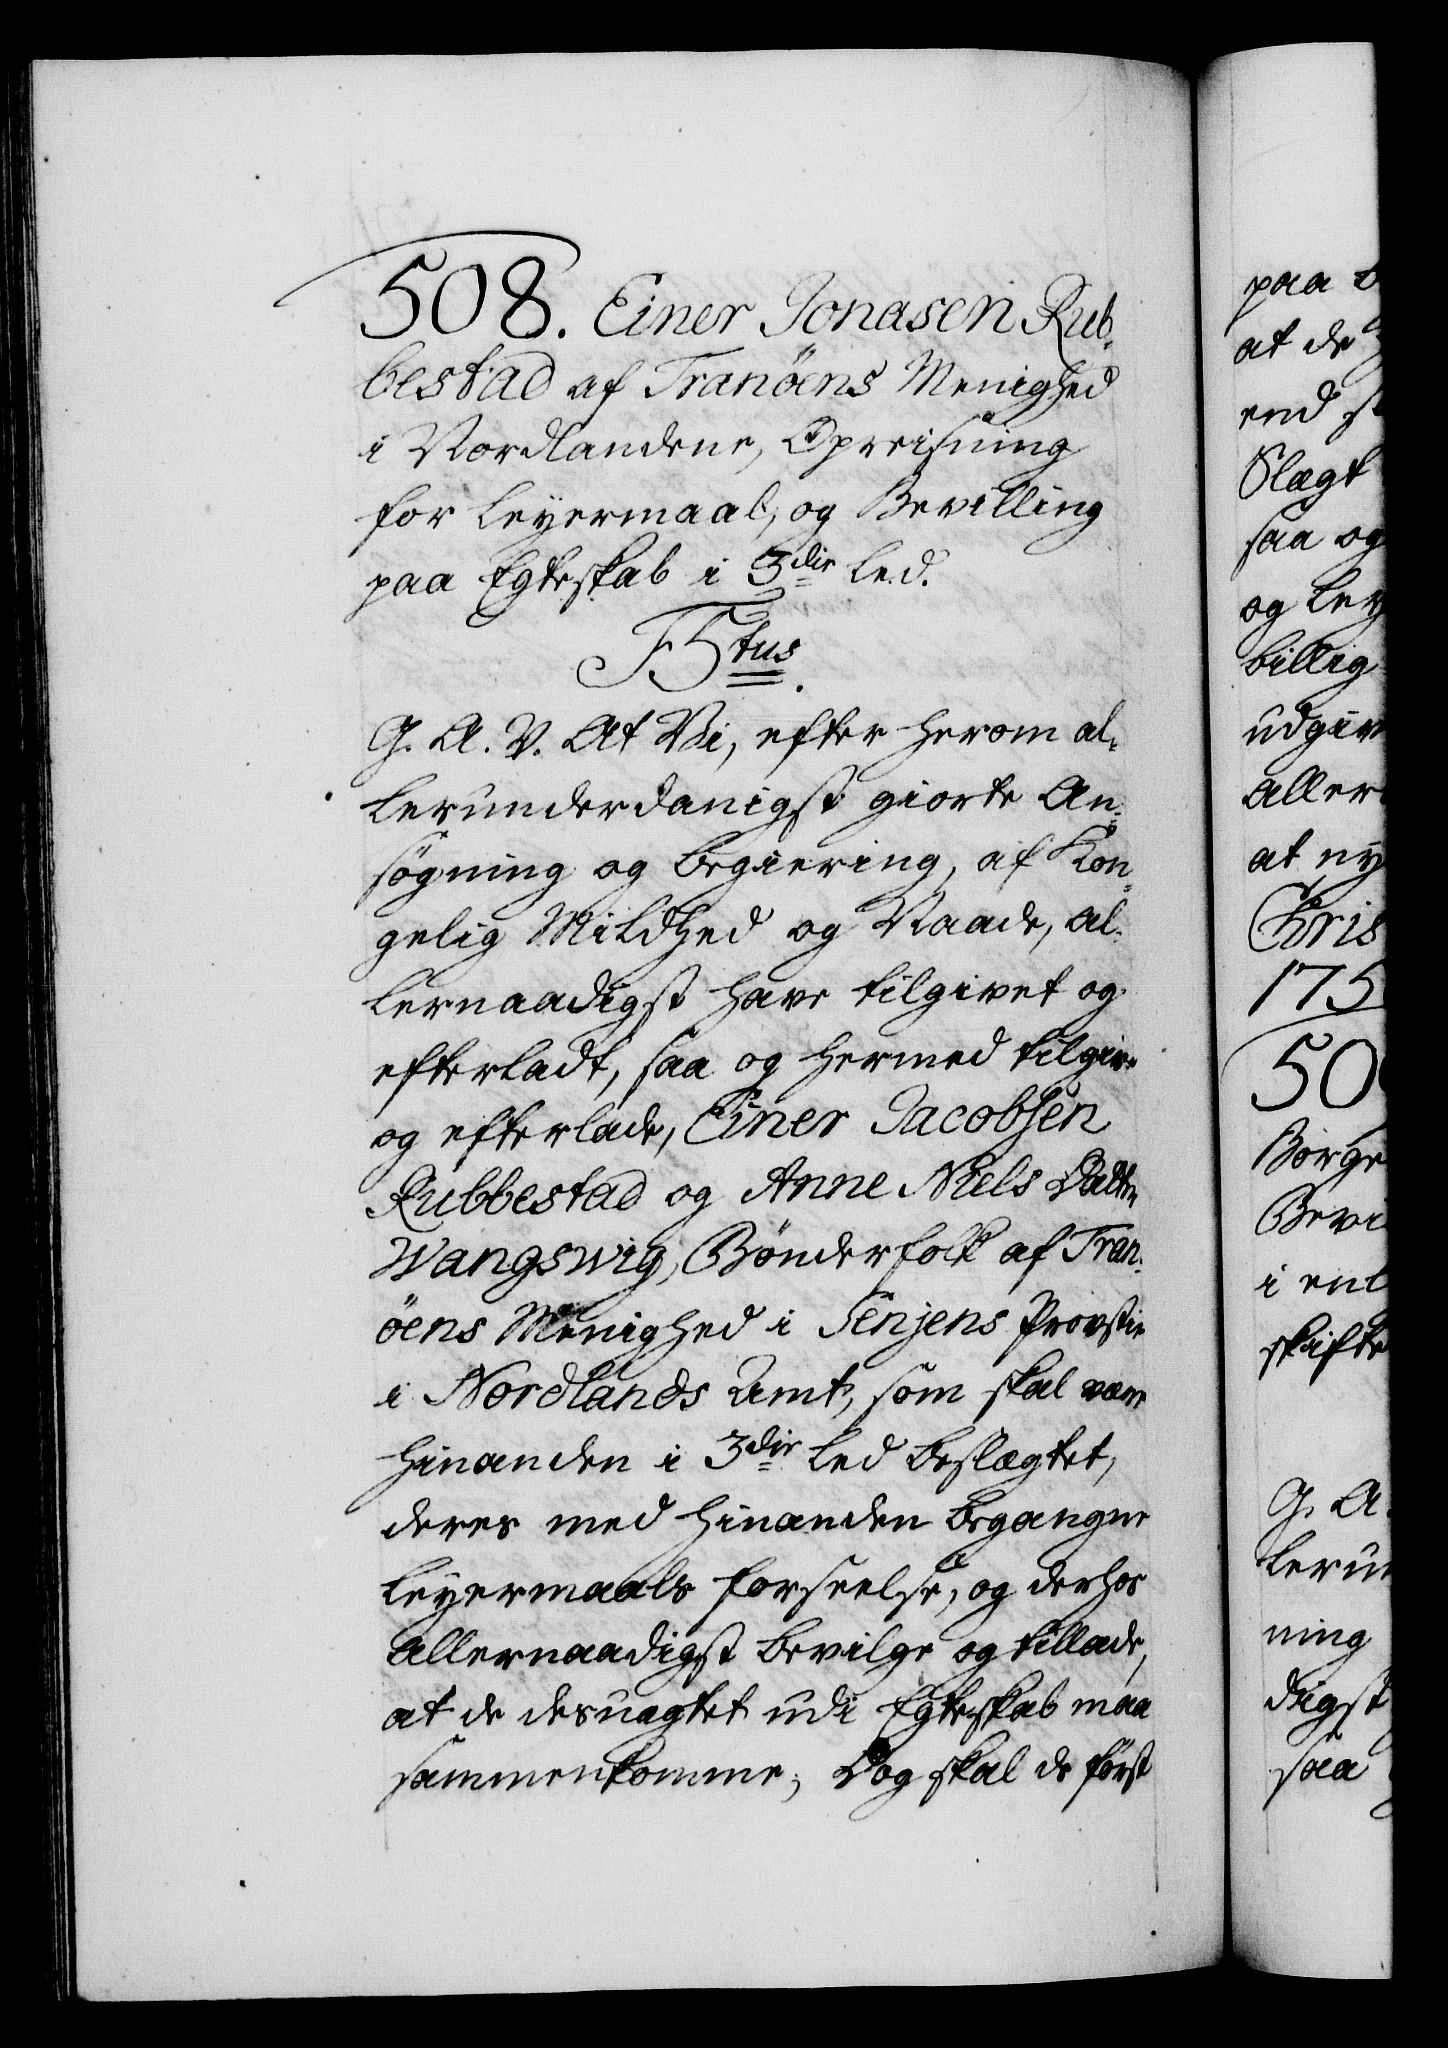 508. Einer Jonasen Rub-
bestad af Tranöens Menighed
i Nordlandene, Opreisning
for Leyermaal, og Bevilling
paa Egteskab i 3die Led.
F5tus.
G. A. V. At Vi, efter herom al-
lerunderdanigst giorte An-
søgning og begiering, af Kon-
gelig Mildhed og Naade, al-
lernaadigst have tilgivet og
efterladt, saa og hermed tilgive
og efterlade, Einer Jacobsen
Rubbestad og Anne Niels Datter
Wangswig, Bønderfolk af Tran-
öens Menighed i Senjens Provstie
i Nordlands Amt, som skal være
hinanden i 3die Led beslægtet,
deres med hinanden begangne
Leyermaals forseelse, og derhos
allernaadigst bevilge og tillade,
at de desuagtet udi Egteskab maa
sammenkomme; Dog skal de først
paa
at de
end
Slægt
saa og
og
billig
udgive
aller
at ny
Chris
175
50
Børge
Bevi
i
skifte
G. A.
lerun
ning
digst
saa